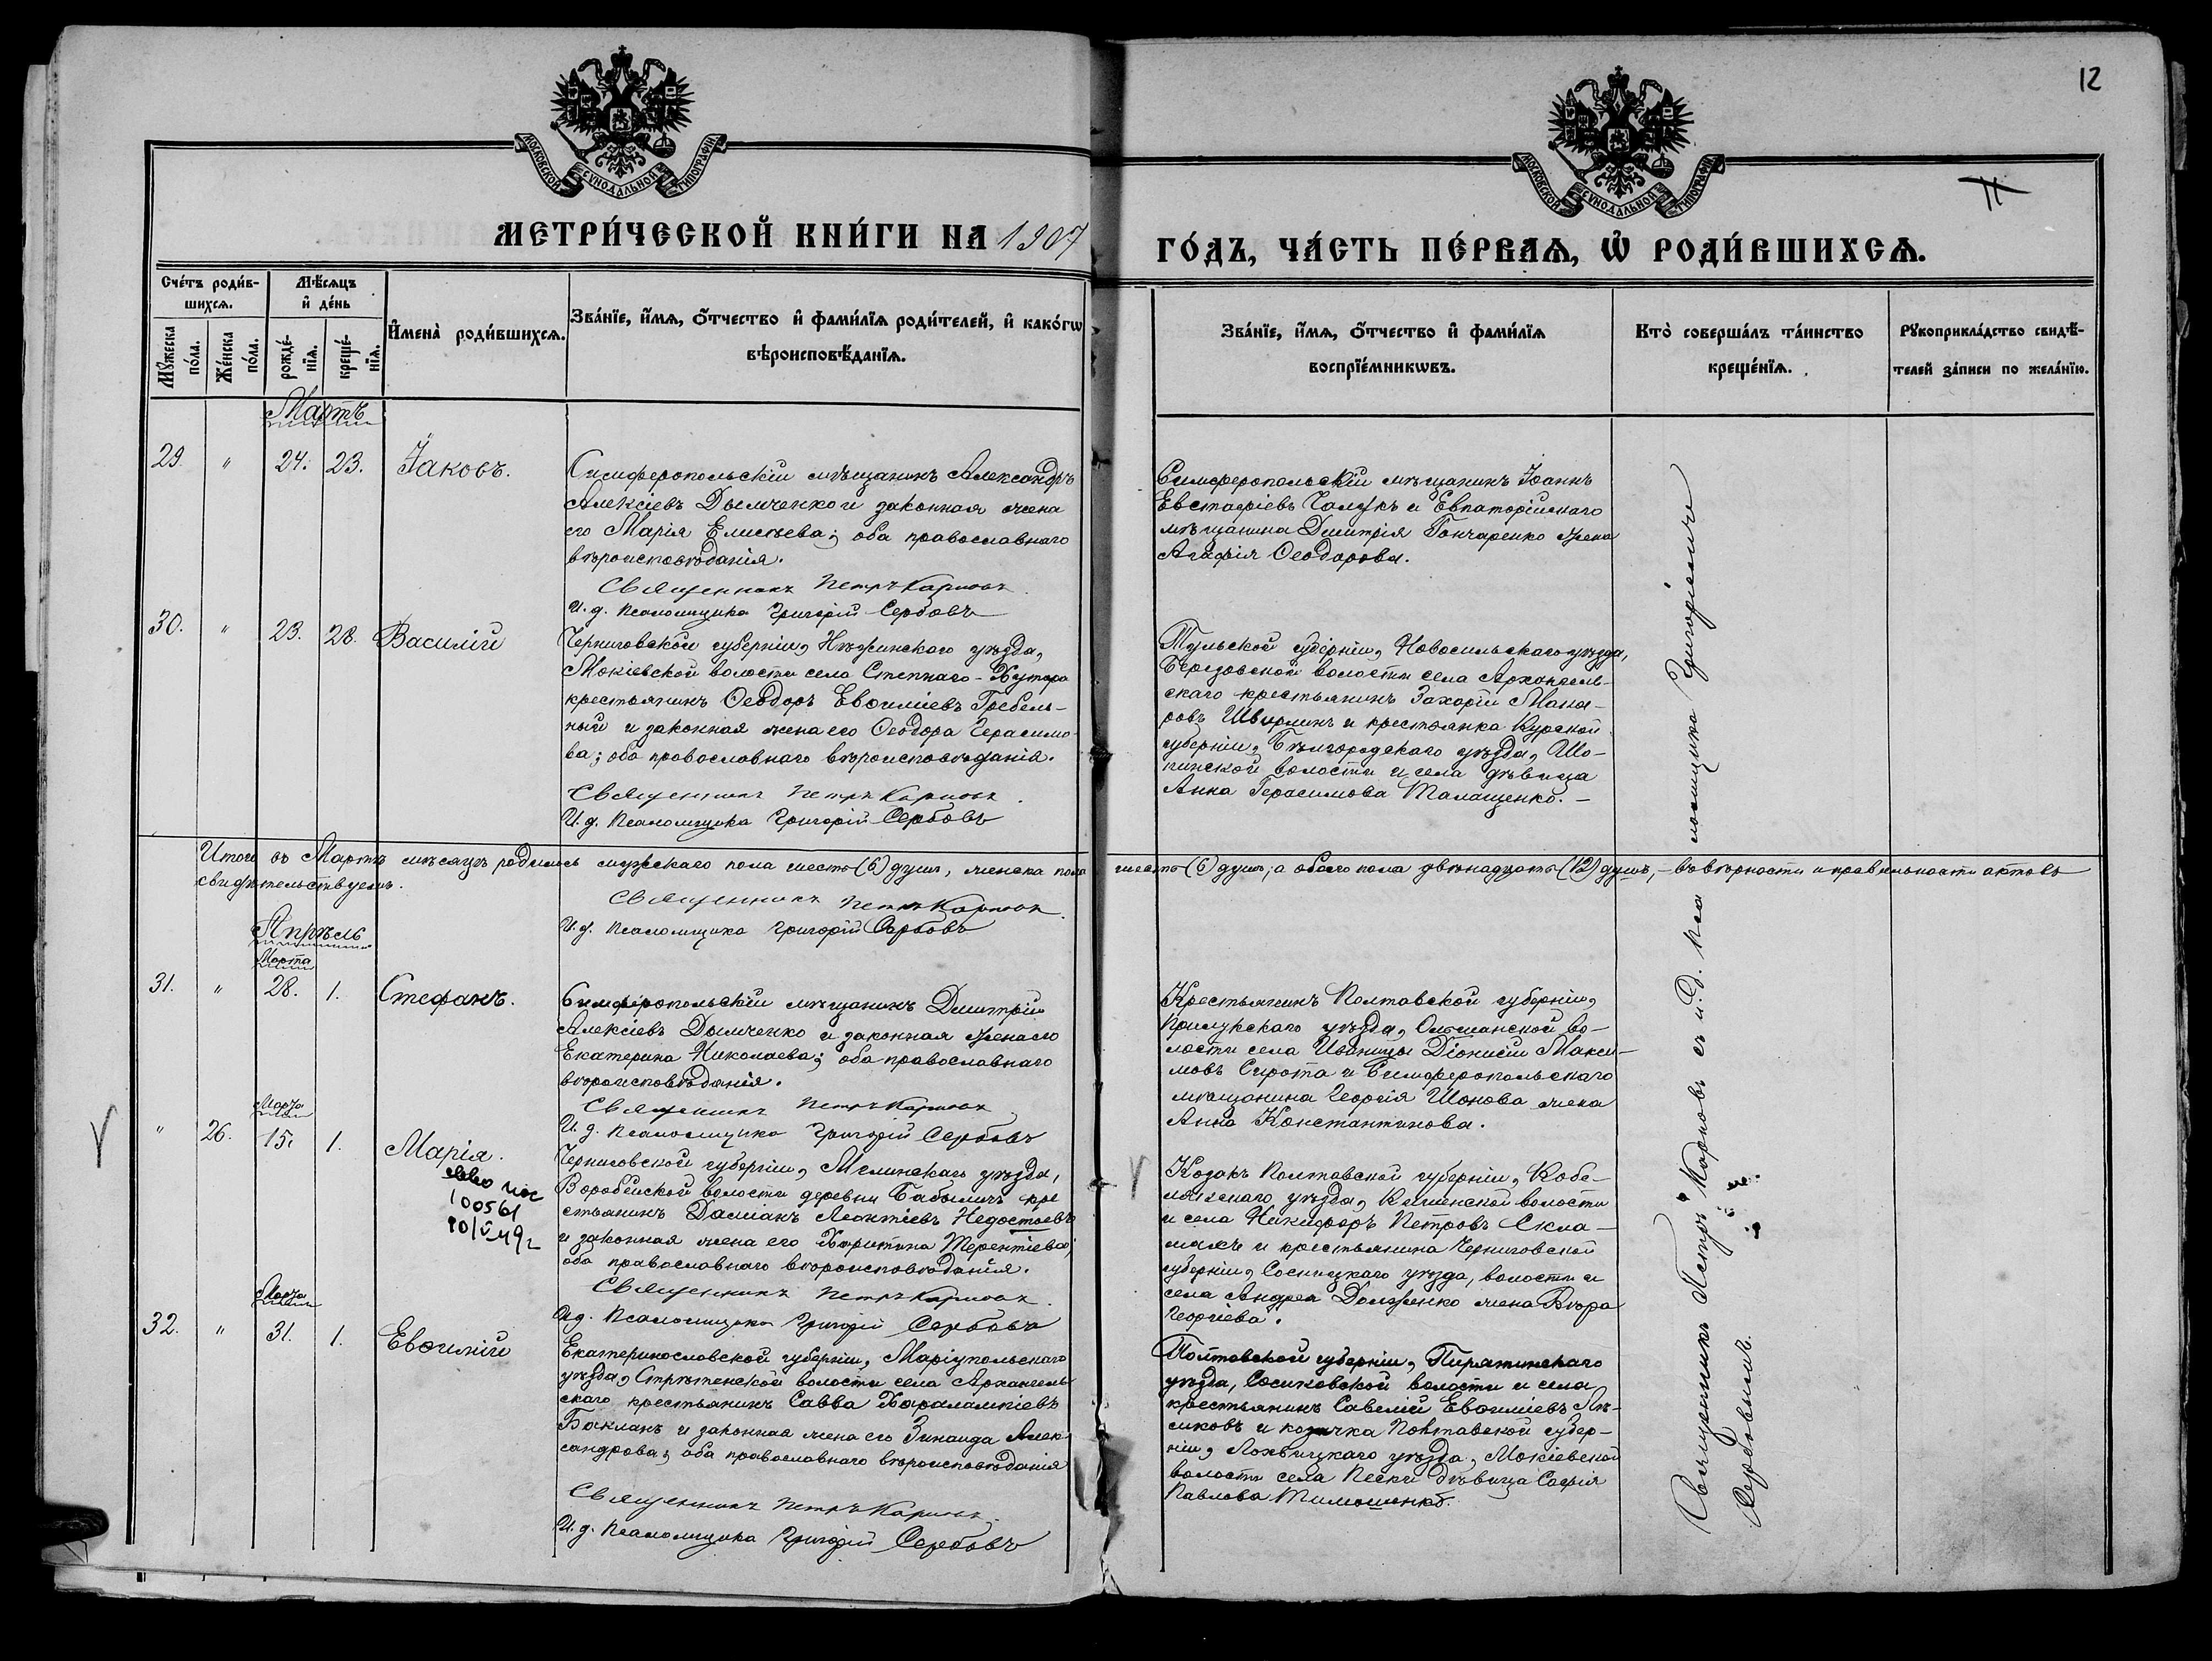 12
11
МОСКОВСКОЙ СУНОДАЛЬНОЙ ТИПОГРАФІИ
МОСКОВСКОЙ СУНОДАЛЬНОЙ ТИПОГРАФІИ
МЕТРИ́ЧЕСКОЙ КНИ́ГИ НА 1907
ГО́ДЪ, ЧА́СТЬ ПЕ́РВАѦ, Ѡ҆ РОДИ́ВШИХСѦ.
Сче́тъ роди́в-
шихсѧ.
Мꙋ́жеска
по́ла.
Же́нска
по́ла.
Мѣ́сѧцъ
и҆ де́нь
рожде́-
нїѧ.
креще́-
нїѧ.
И҆мена̀ роди́вшихсѧ.
Зва́нїе, и҆́мѧ, ѻ҆́тчество и҆ фами́лїѧ роди́телей, и҆ како́гѡ
вѣроисповѣ́данїѧ.
Зва́нїе, и҆́мѧ, ѻ҆́тчество и҆ фами́лїѧ
воспрїе́мникѡвъ.
Кто̀ соверша́лъ та́инство
креще́нїѧ.
Рꙋкоприкла́дство свидѣ́-
телей за́писи по жела́нїю.
Мартъ
29. " 24. 23. Іаковъ.
Симферопольскій мѣщанинъ Александръ
Алексіевъ Дымченко и законная жена
его Марія Елисѣева; оба православнаго
вѣроисповѣданія.
Священникъ Петръ Карповъ
И. д. Псаломщика Григорій Сербовъ
Симферопольскій мѣщанинъ Іоаннъ
Евстафіевъ Чалукъ и Евпаторійскаго
мѣщанина Димитрія Гончаренко жена
Агафія Ѳеодорова.
30. " 23. 28. Василій
Черниговской губерніи, Нѣжинскаго уѣзда,
Мокіевской волости села Степнаго-Хутора
крестьянинъ Ѳеодоръ Евѳиміевъ Гребель-
ный и законная жена его Ѳеодора Герасимо-
ва; оба православнаго вѣроисповѣданія.
Священникъ Петръ Карповъ
И. д. Псаломщика Григорій Сербовъ
Тульской губерніи, Новосильскаго уѣзда,
Березовской волости села Архангель-
скаго крестьянинъ Захарій Мака-
ровъ и крестьянка Курской
губерніи, Бѣлгородскаго уѣзда, Шо-
пинской волости и села дѣвица
Анна Герасимова Талащенко. —
Итого въ Мартѣ мѣсяцѣ родилось мужскаго пола шесть (6) душъ, женска пола шесть (6) душъ; а обоего пола двѣнадцать (12) душъ, — въ вѣрности и правильности актовъ
свидѣтельствуемъ.
Священникъ Петръ Карповъ
И. д. Псаломщика Григорій Сербовъ
Апрѣль
Марта
31. " 28. 1. Стефанъ.
Симферопольскій мѣщанинъ Димитрій
Алексіевъ Дымченко и законная жена его
Екатерина Николаева; оба православнаго
вѣроисповѣданія.
Священникъ Петръ Карповъ
И. д. Псаломщика Григорій Сербовъ
Крестьянинъ Полтавской губерніи,
Прилукскаго уѣзда, Ольшанской во-
лости села Иваницы Діонисій Макси-
мовъ Сирота и Симферопольскаго
мѣщанина Георгія Шонова жена
Анна Константинова.
Марта
" 26. 15. 1. Марія.
100561
10/V-49г
Черниговской губерніи, Мглинскаго уѣзда,
Воробейской волости деревни Бабыничъ кре-
стьянинъ Даміанъ Леонтіевъ Недостоевъ
и законная жена его Харитина Терентіева;
оба православнаго вѣроисповѣданія.
Священникъ Петръ Карповъ
И. д. Псаломщика Григорій Сербовъ
Козакъ Полтавской губерніи, Кобе-
лякскаго уѣзда, Кишенской волости
и села Никифоръ Петровъ
и крестьянина Черниговской
губерніи, Сосницкаго уѣзда, волости и
села Андрея Долженко жена Вѣра
Георгіева.
Марта
32. " 31. 1. Евѳимій
Екатеринославской губерніи, Маріупольскаго
уѣзда, Стрѣтенской волости села Архангель-
скаго крестьянинъ Савва Харалампіевъ
Бакланъ и законная жена его Зинаида Алек-
сандрова; оба православнаго вѣроисповѣданія
Священникъ Петръ Карповъ
И. д. Псаломщика Григорій Сербовъ
Полтавской губерніи, Пирятинскаго
уѣзда, Сасиновской волости и села
крестьянинъ Савелій Евѳиміевъ
и козачка Полтавской губер-
ніи, Лохвицкаго уѣзда, Мокіевской
волости села Пески дѣвица Софія
Павлова Тимошенко.
Священникъ Петръ Карповъ съ и. д. псаломщика Григоріемъ
Сербовымъ.